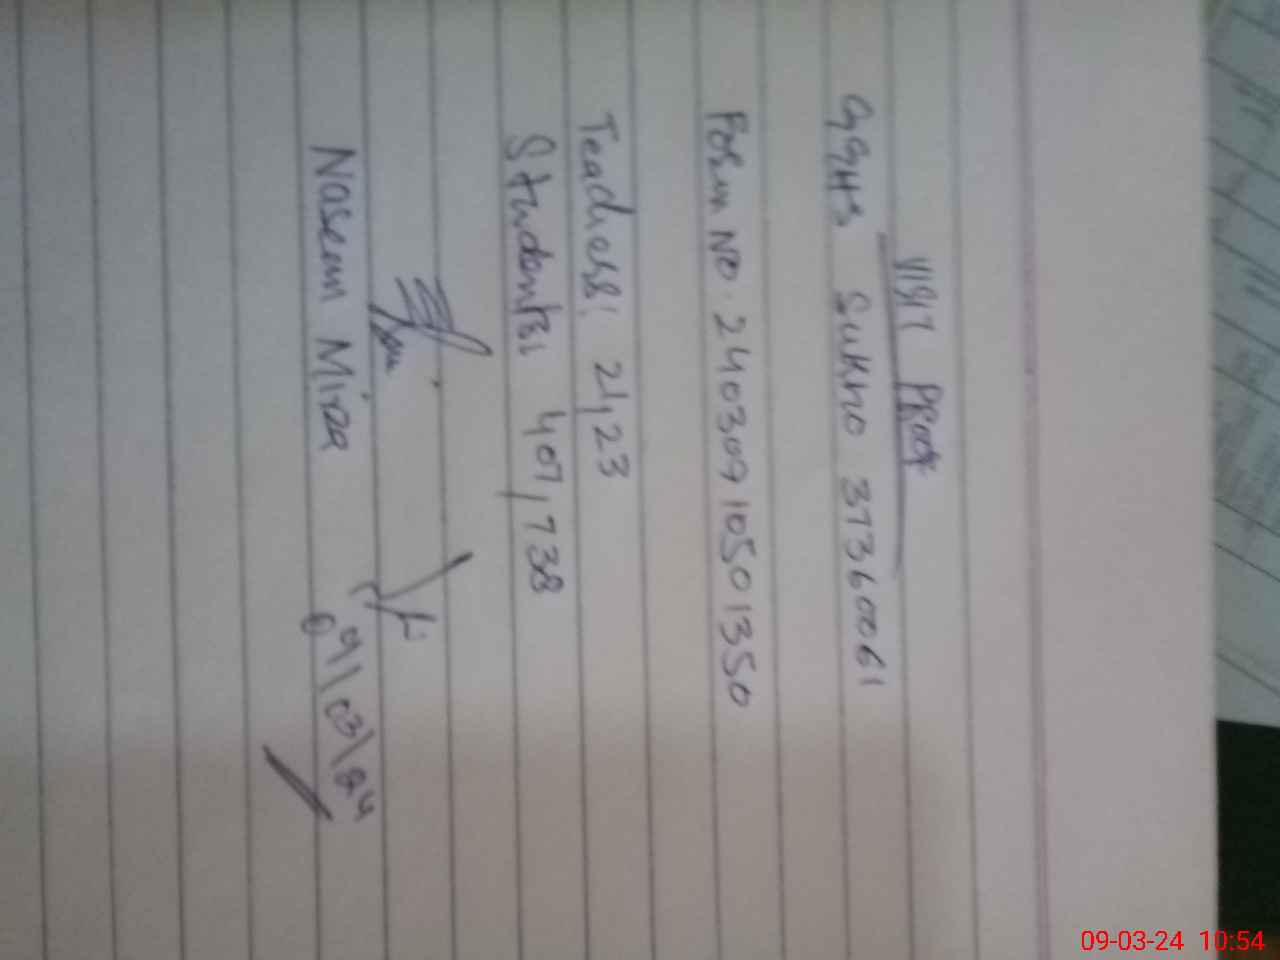 VISIT PROOF
GGHS Sukho 37360061
Form No. 24030910501350
Teachers: 21,23
Students: 407,738
Naseem Mirza
09/03/24
09-03-24 10:54